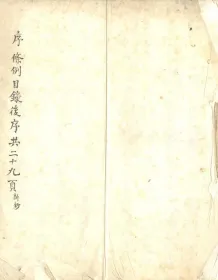 序條例目錄後序共二十九頁